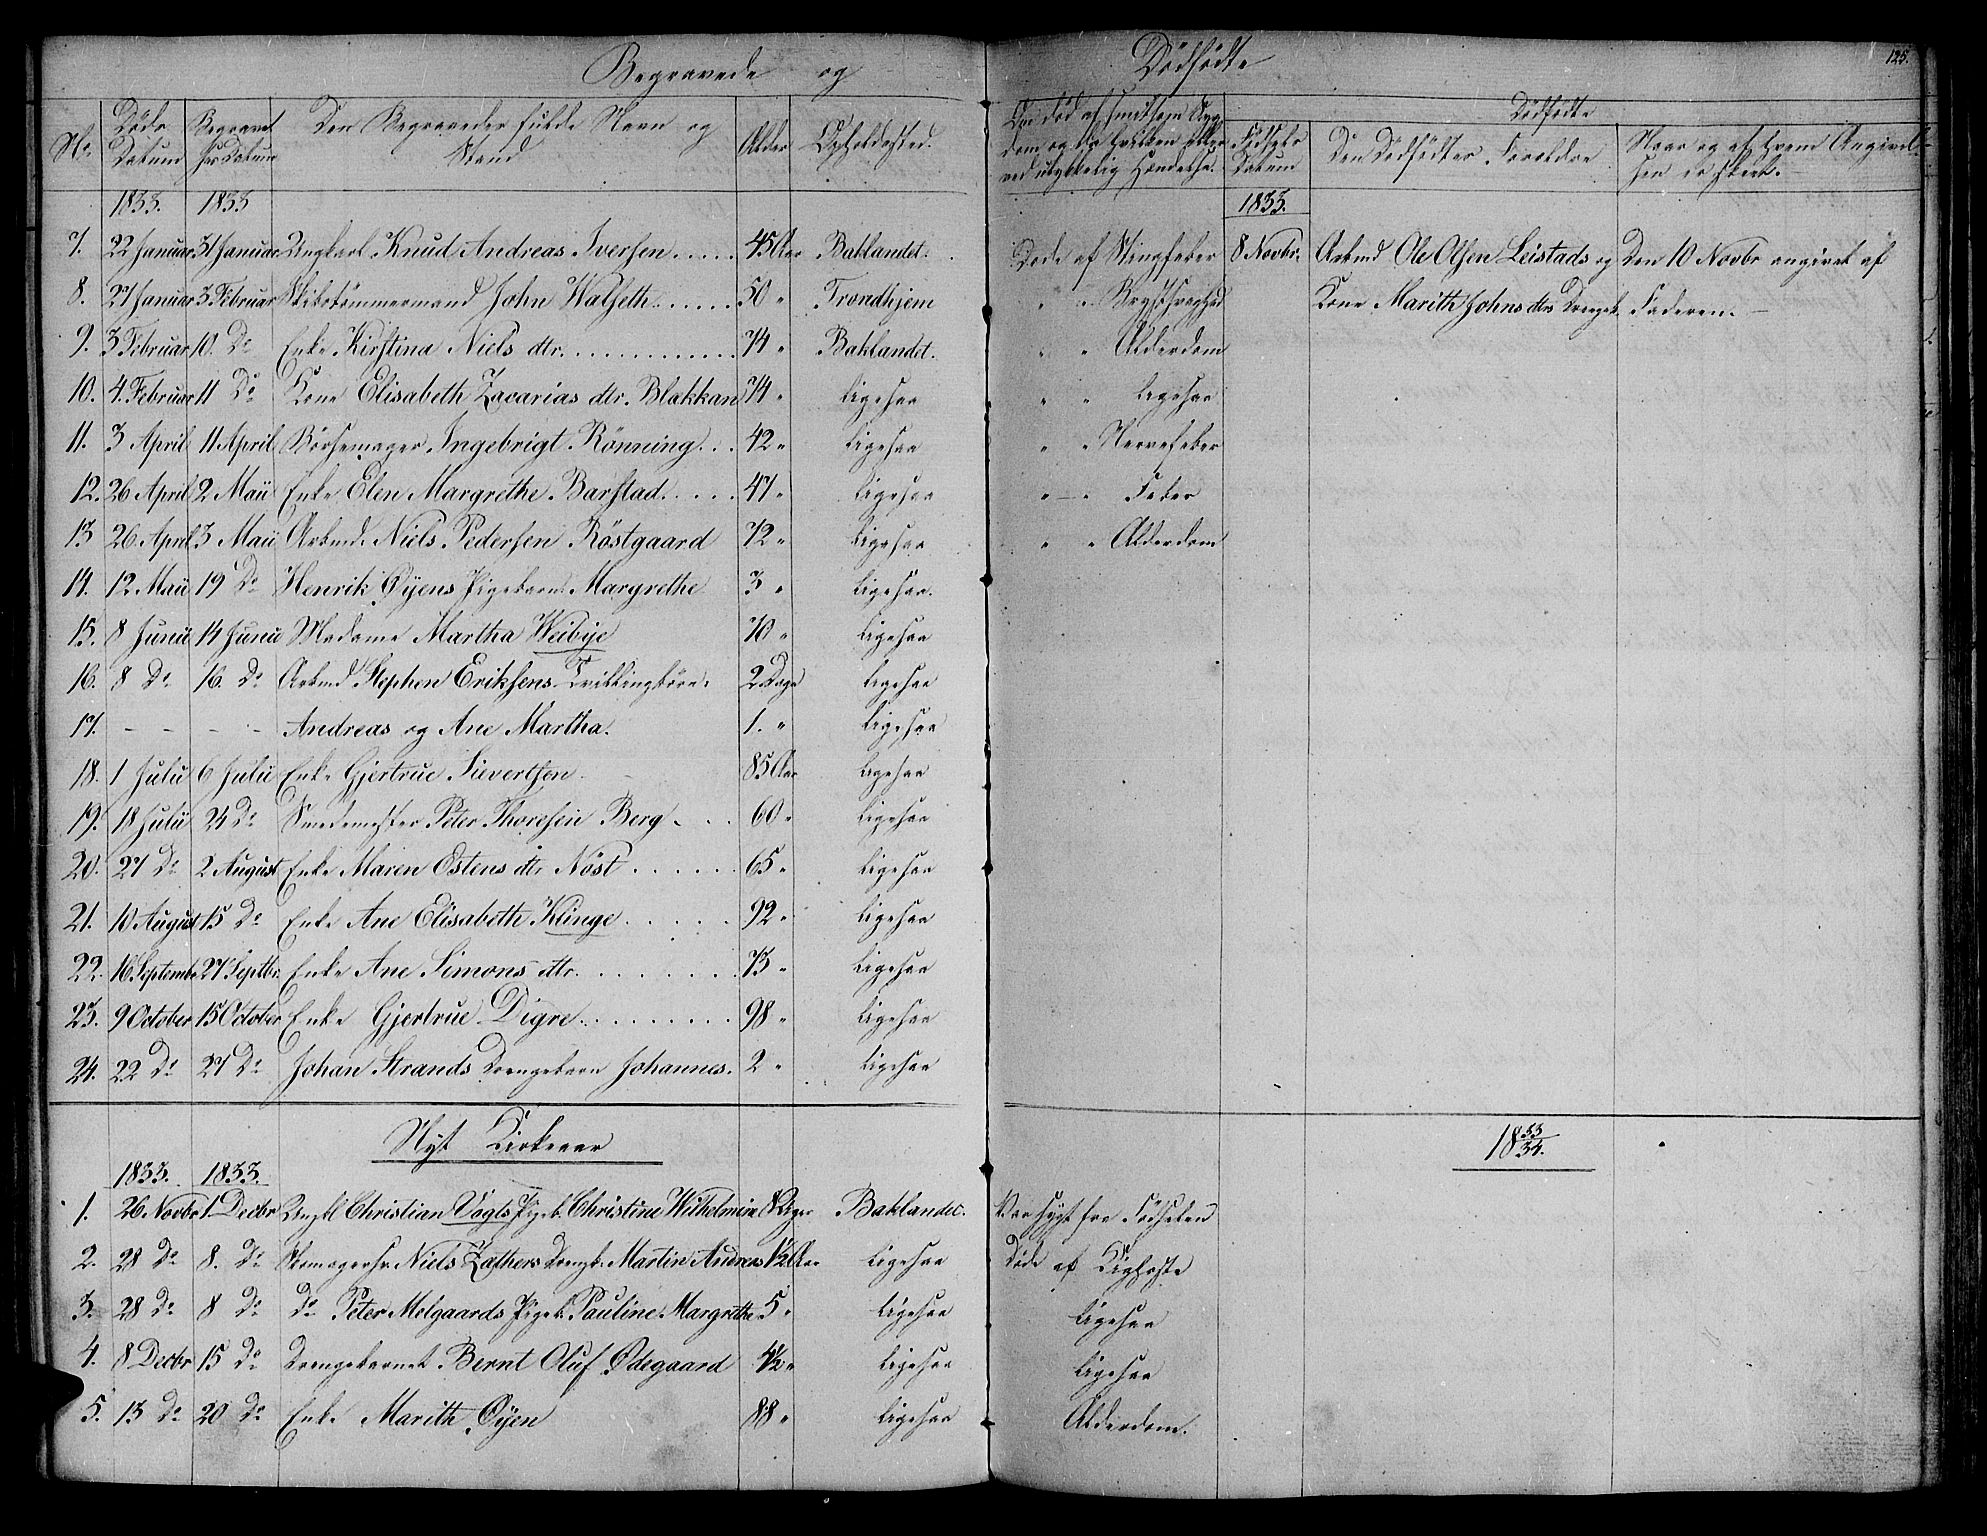 Begravede og Dödfödte 125.
No. Döds Datum Begravet Datum Den Begravedes fulde Navn og Stand Alder Opholdssted. Om död af smitsom Syg-
dom, og da hvilken eller
ved ulykkelig Hændelse. Födsels Datum Dödfödte
Den Dödfödtes Forældre Naar og af Hvem Angivel-
sen er skeet.
1833. 1833 1833.
7. 22 Januar 31 Januar Ungkarl Knud Andreas Iversen ..... 45 Aar Baklandet. Döde af Stingfeber 8 Novbr. Arbmd Ole Olsen Leistads og Den 10 Novbr angivet af
8. 27 Januar 3 Februar Skibstömmermand John Walseth ...... 50 " Trondhjem " " Brystsvaghed Kone Marith Johns dtr Drengeb. Faderen.
9. 3 Februar 10. Do Enke Kirstina Niels dtr. ............. 74 " Baklandet. " " Alderdom
10. 4. Februar 11 Do Kone Elisabeth Zacarias dtr. Blakkan 74 " Ligesaa " " Ligesaa
11. 3 April 11 April Börsemager Ingebrigt Rönning ... 42 " Ligesaa " " Nervefeber
12. 26 April 2 Maii Enke Elen Margrethe Barstad ..... 47 " Ligesaa " " Feber
13 26 April 3 Maii Arbmd. Niels Pedersen Röstgaard 72 " Ligesaa " " Alderdom
14. 12 Maii 19 Do Henrik Øyens Pigebarn Margrethe 3 " Ligesaa.
15. 8 Junii 14 Junii Madame Martha Weibye 70 " Ligesaa
16. 8 Do 16. Do Arbmd Stephen Eriksens Tvillingbörn. 2 Dage Ligesaa
17. - - - - Andreas og Ane Martha. 1. " Ligesaa
18. 1 Julii 6 Julii Enke Gjertrue Sievertsen 85 Aar Ligesaa
19. 18 Julii 24 Do Smedemester Peter Thoresen Berg 60 " Ligesaa
20. 27 Do 2 August Enke Maren Ostens dtr Nöst ...... 65 " Ligesaa
21. 10 August 15 Do Enke Ane Elisabeth Klinge ..... 92 " Ligesaa
22. 16 Septembr 27 Septbr. Enke Ane Simons dtr. ....... 73 " Ligesaa
23. 9 October 15 October Enke Gjertrue Digre ......... 98 " Ligesaa
24. 22 Do 27 Do Johan Strands Drengebarn Johannes. 2 " Ligesaa
Nyt Kirkeaar 18 33/34.
1833. 1833.
1. 26 Novbr 1 Decbr Ungkl Christian Vogts Pigeb. Christine Wilhelmine 8 Uger Baklandet. Var sygt fra Födselen
2. 28 Do 8. Do Skomagersv. Niels Zathers Drengb. Martin Andreas 1½ Aar Ligesaa Döde af Kighoste
3. 28 Do 8 Do Do Peter Melgaards Pigeb. Pauline Margrethe 5 " Ligesaa Ligesaa
4. 8 Decbr 15 Do Drengebarnet Bernt Oluf Ødegaard 4½ " Ligesaa Ligesaa
5. 13 Do 20 Do Enke Marith Øyen 88 " Ligesaa Alderdom.